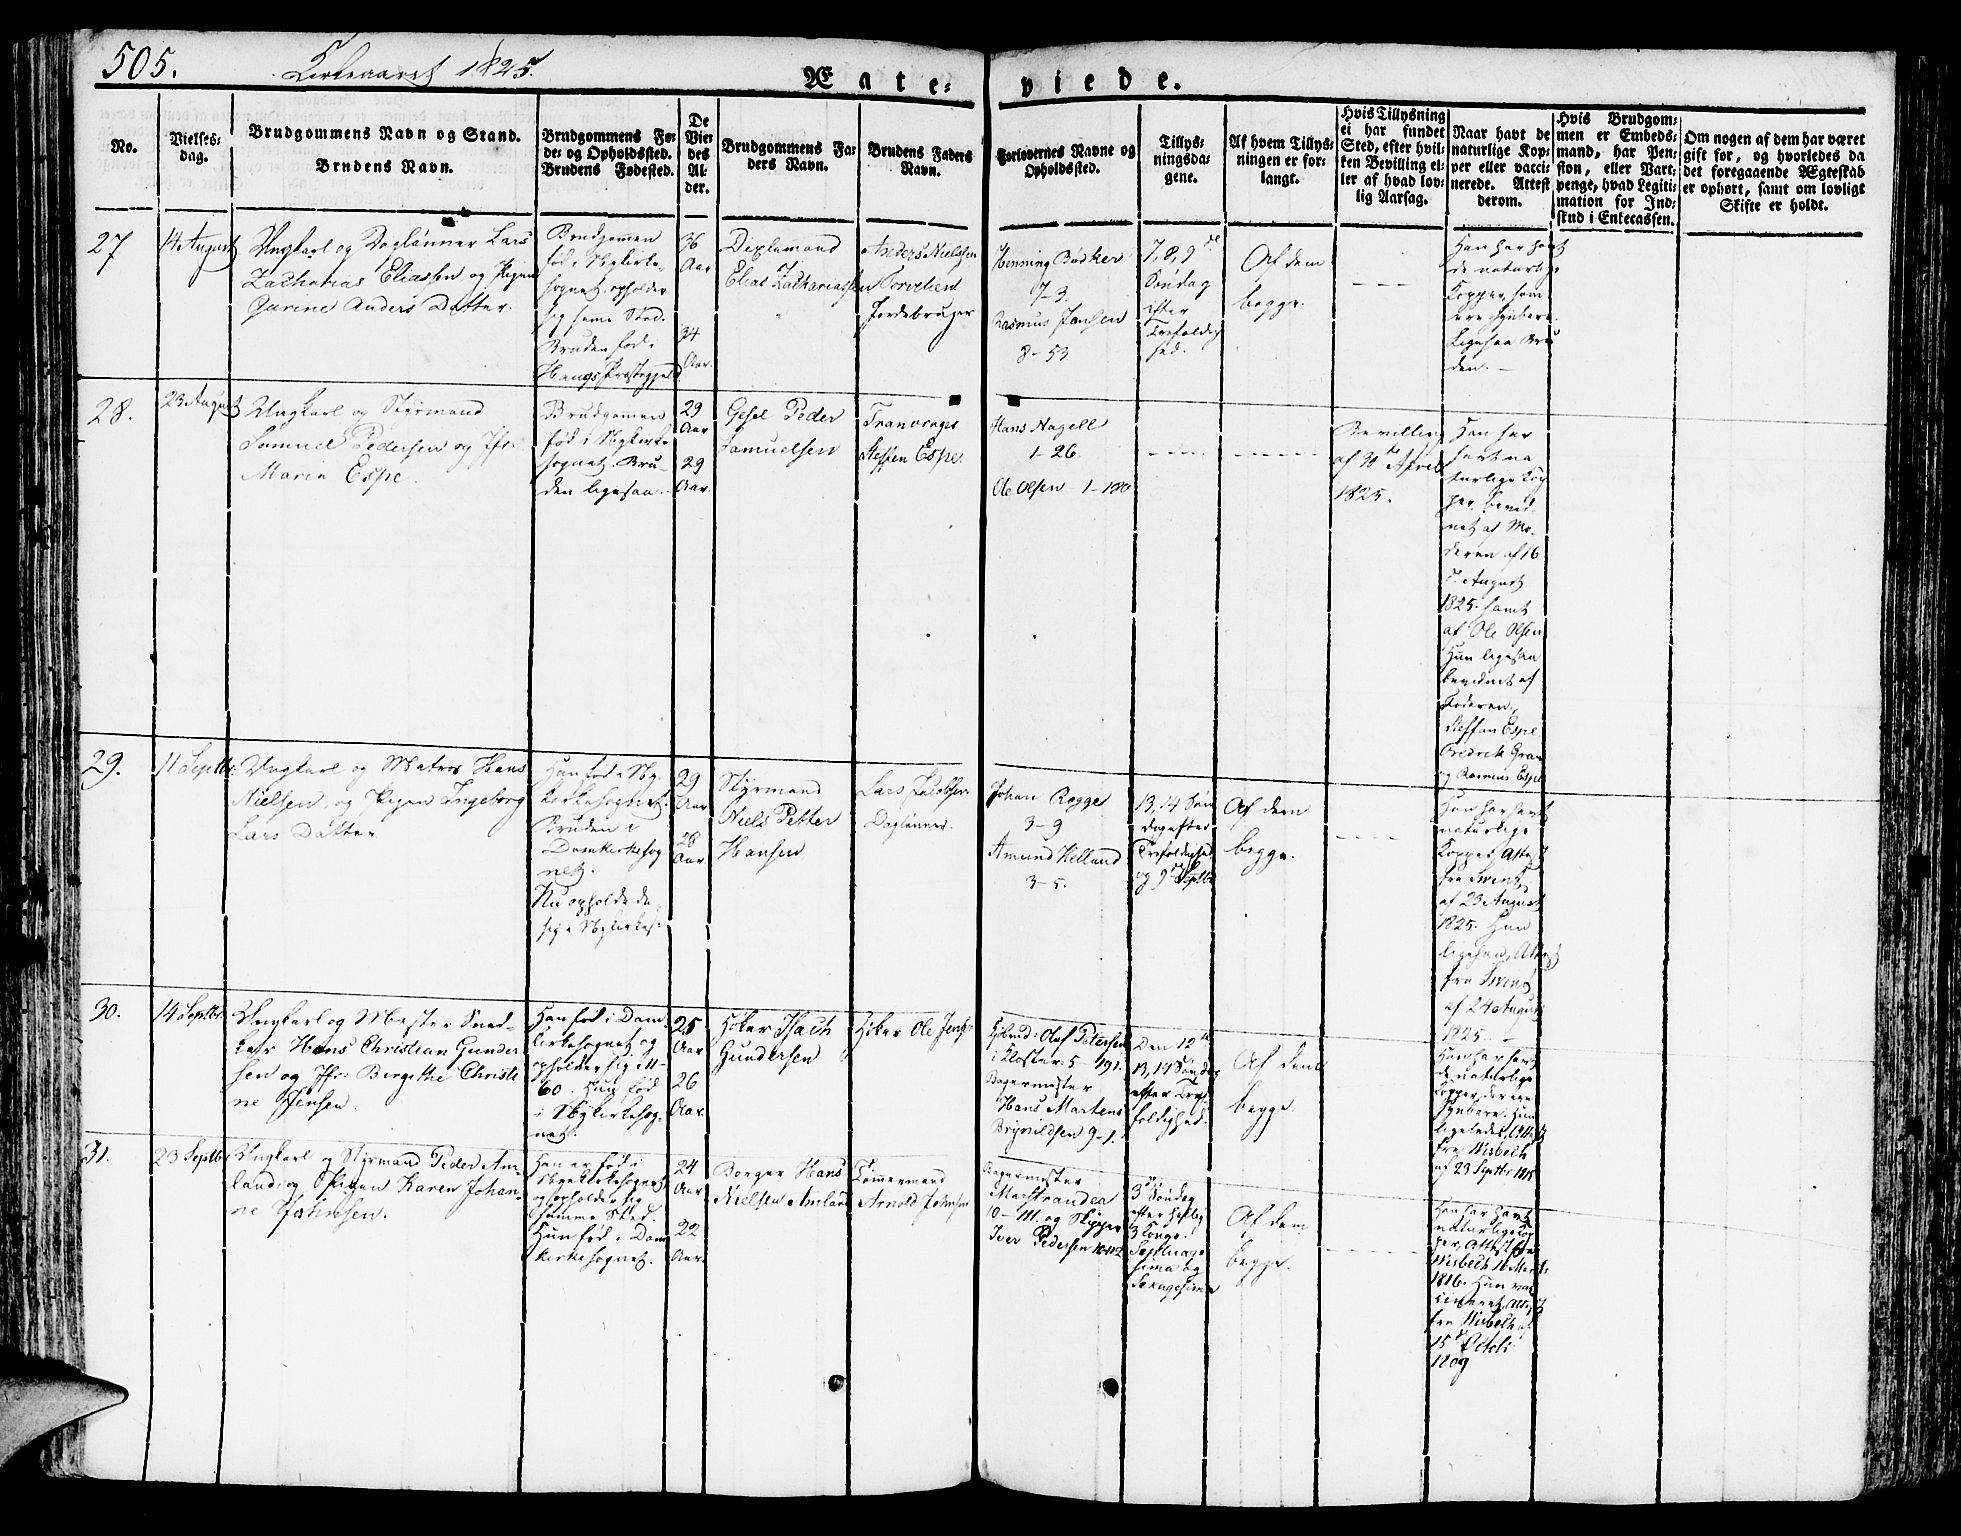 505.
Kirkeaaret 1825.
Ægte-
viede.
No.
Vielses-
dag.
Brudgommens Navn og Stand.
Brudens Navn.
Brudgommens Fø-
de- og Opholdssted.
Brudens Fødested.
De
Vie-
des
Al-
der.
Brudgommens Fa-
ders Navn.
Brudens Faders
Navn.
Forlovernes Navne og
Opholdssted.
Tillys-
ningsda-
gene.
Af hvem Tillys-
ningen er for-
langt.
Hvis Tillysning
ei har fundet
Sted, efter hvil-
ken Bevilling el-
ler af hvad lov-
lig Aarsag.
Naar havt de
naturlige Kop-
per eller vacci-
nerede. Attest
derom.
Hvis Brudgom-
men er Embeds-
mand, har Pen-
sion, eller Vart-
penge, hvad Legiti-
mation for Ind-
skud i Enkecassen.
Om nogen af dem har været
gift før, og hvorledes da
det foregaaende Ægteskab
er ophørt, samt om lovligt
Skifte er holdt.
27
14 August
Ungkarl og Daglønner Lars
Zacharias Eliassen og Pigen
Gurine Anders Datter.
Brudgomen
fød i Nykirke-
sognet, opholder
sig samme Sted.
Bruden fød i
Hougs Præstegjeld
36
Aar
34
Aar.
Elias Zachariassen
Anders Nielsen
Jordebruger
Henning Bødker
7-3.
Rasmus Jansen
8-53
7, 8, 9de
Søndag
efter
Trefoldig
hed.
Af dem
begge.
Han har havt
de naturlige
Kopper, som
ere synbare.
Ligesaa Bru
den.
28.
23 August
Ungkarl og Styrmand
Samuel Pedersen og Jfr.
Maren Espe.
Brudgomen
fød i Nykirke
sognet. Bru-
den ligesaa.
29
Aar
29
Aar.
Peder
Samuelsen
Tranvrager
Steffen Espe.
Hans Nagell
1-26.
Ole Olsen 1-180
Bevilling
af 30 April
1825.
Han har
havt na
turlige Kop
per, bevid-
net af Mo-
deren af 16
August
1825. samt
af Ole Olsen
Hun ligesaa
bevidnet af
Faderen,
Steffan Espe
Fredrik Gran
og Rasmus Espe
29.
11 Septbr.
Ungkarl og Matros Hans
Nielsen, og Pigen Ingeborg
Lars Datter
Han fød i Ny-
kirkesognet.
Bruden i
Domkirkesog
net.
Nu opholde de
sig i Nykirkes:
29
Aar
28
Aar
Styrmand
Niels Petter
Hansen
Lars Jacobsen
Daglønner.
Johan Rogge
3-9
Amund Helland
3-5.
13, 14 Søn
dag efter
Trefoldighed
og 9 Septbr
Af dem
begge.
Han har havt
naturlige
Kopper, Attest
fra
af 23 August
1825. Hun
ligesaa, Attest
fra
af 24 August
1825.
30.
14 Septbr.
Ungkarl og Mester Sned-
ker Hans Christian Gunder
sen og Jfr: Birgithe Christi
ne Jensen.
Han fød i Dom-
kirkesognet og
opholder sig i 11-
60. Hun fød
i Nykirkesog-
net.
25
Aar
26
Aar.
Høker Isach
Gundersen
Høker Ole Jensen
Kjøbmd: Oluf Petersen
i Kloster: 5-191.
Bagermester
Hans Martens
Brynildsen 9-1.
Den 12te
13, 14 Søndag
efter Tre-
foldighed.
Af dem
begge.
Han har havt
de naturlige
Kopper, der ere
synbare. Hun
ligeledes, Attest
fra Wisbech
af 23 Septbr
31.
23 Septbr
Ungkarl og Styrmand Peder Am-
land og Pigen Karen Johan-
ne Johnsen.
Han er fød i
Nykirkesognet
og opholder sig
samme Sted.
Hun fød i Dom
kirkesognet.
24
Aar
22
Aar.
Borger Hans
Nielsen Amland
Tømermand
Arnold Johnsen
Bagermester
Marstrander
10-111. og Skipper
Iver Pedersen
3 Søndag
efter Hellig
3 Konge.
Septuage
sima og
Sexagesima
Af dem
begge.
Han har havt
naturlige Kop
per, Attest fra
Wisbech 16 Marts
1816. Hun vac
cineret, Attest
fra Wisbech af
15 Octob:
1809